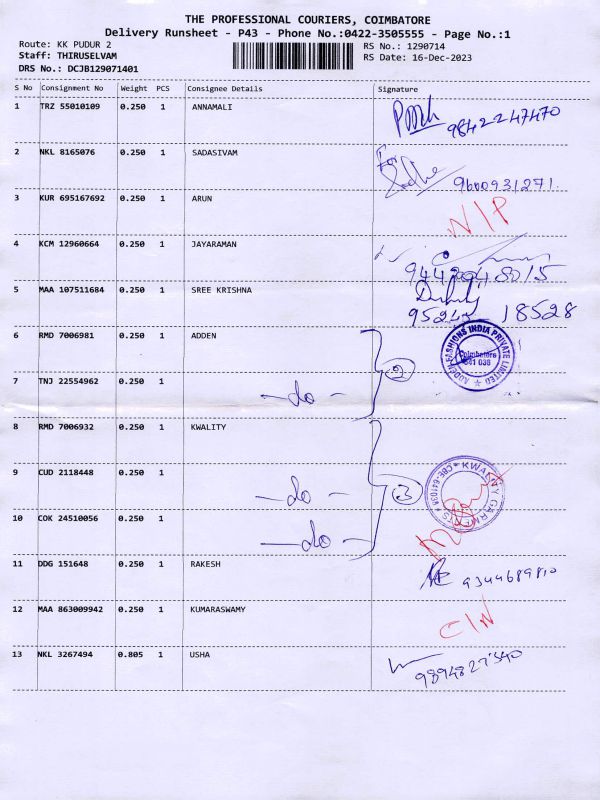 THE PROFESSIONAL COURIERS, COIMBATORE
Delivery Runsheet - P43 - Phone No.:0422-3505555 - Page No.:1
Route: KK PUDUR 2
RS No.: 1290714
Staff: THIRUSELVAM
RS Date: 16-Dec-2023
DRS No.: DCJB129071401
S No Consignment No Weight PCS Consignee Details Signature
1 TRZ 55010109 0.250 1 ANNAMALI
9842247470
2 NKL 8165076 0.250 1 SADASIVAM
For
9600931271
3 KUR 695167692 0.250 1 ARUN
N/P
4 KCM 12960664 0.250 1 JAYARAMAN
5 MAA 107511684 0.250 1 SREE KRISHNA
18528
6 RMD 7006981 0.250 1 ADDEN
2
ADDEN FASHIONS INDIA PRIVATE LIMITED
Coimbatore
641 038
7 TNJ 22554962 0.250 1 -do-
8 RMD 7006932 0.250 1 KWALITY
3
KWALITY GARMENTS
CBE-641038
9 CUD 2118448 0.250 1 -do-
10 COK 24510056 0.250 1 -do-
11 DDG 151648 0.250 1 RAKESH
9344689810
12 MAA 863009942 0.250 1 KUMARASWAMY
C/N
13 NKL 3267494 0.805 1 USHA
9894827340